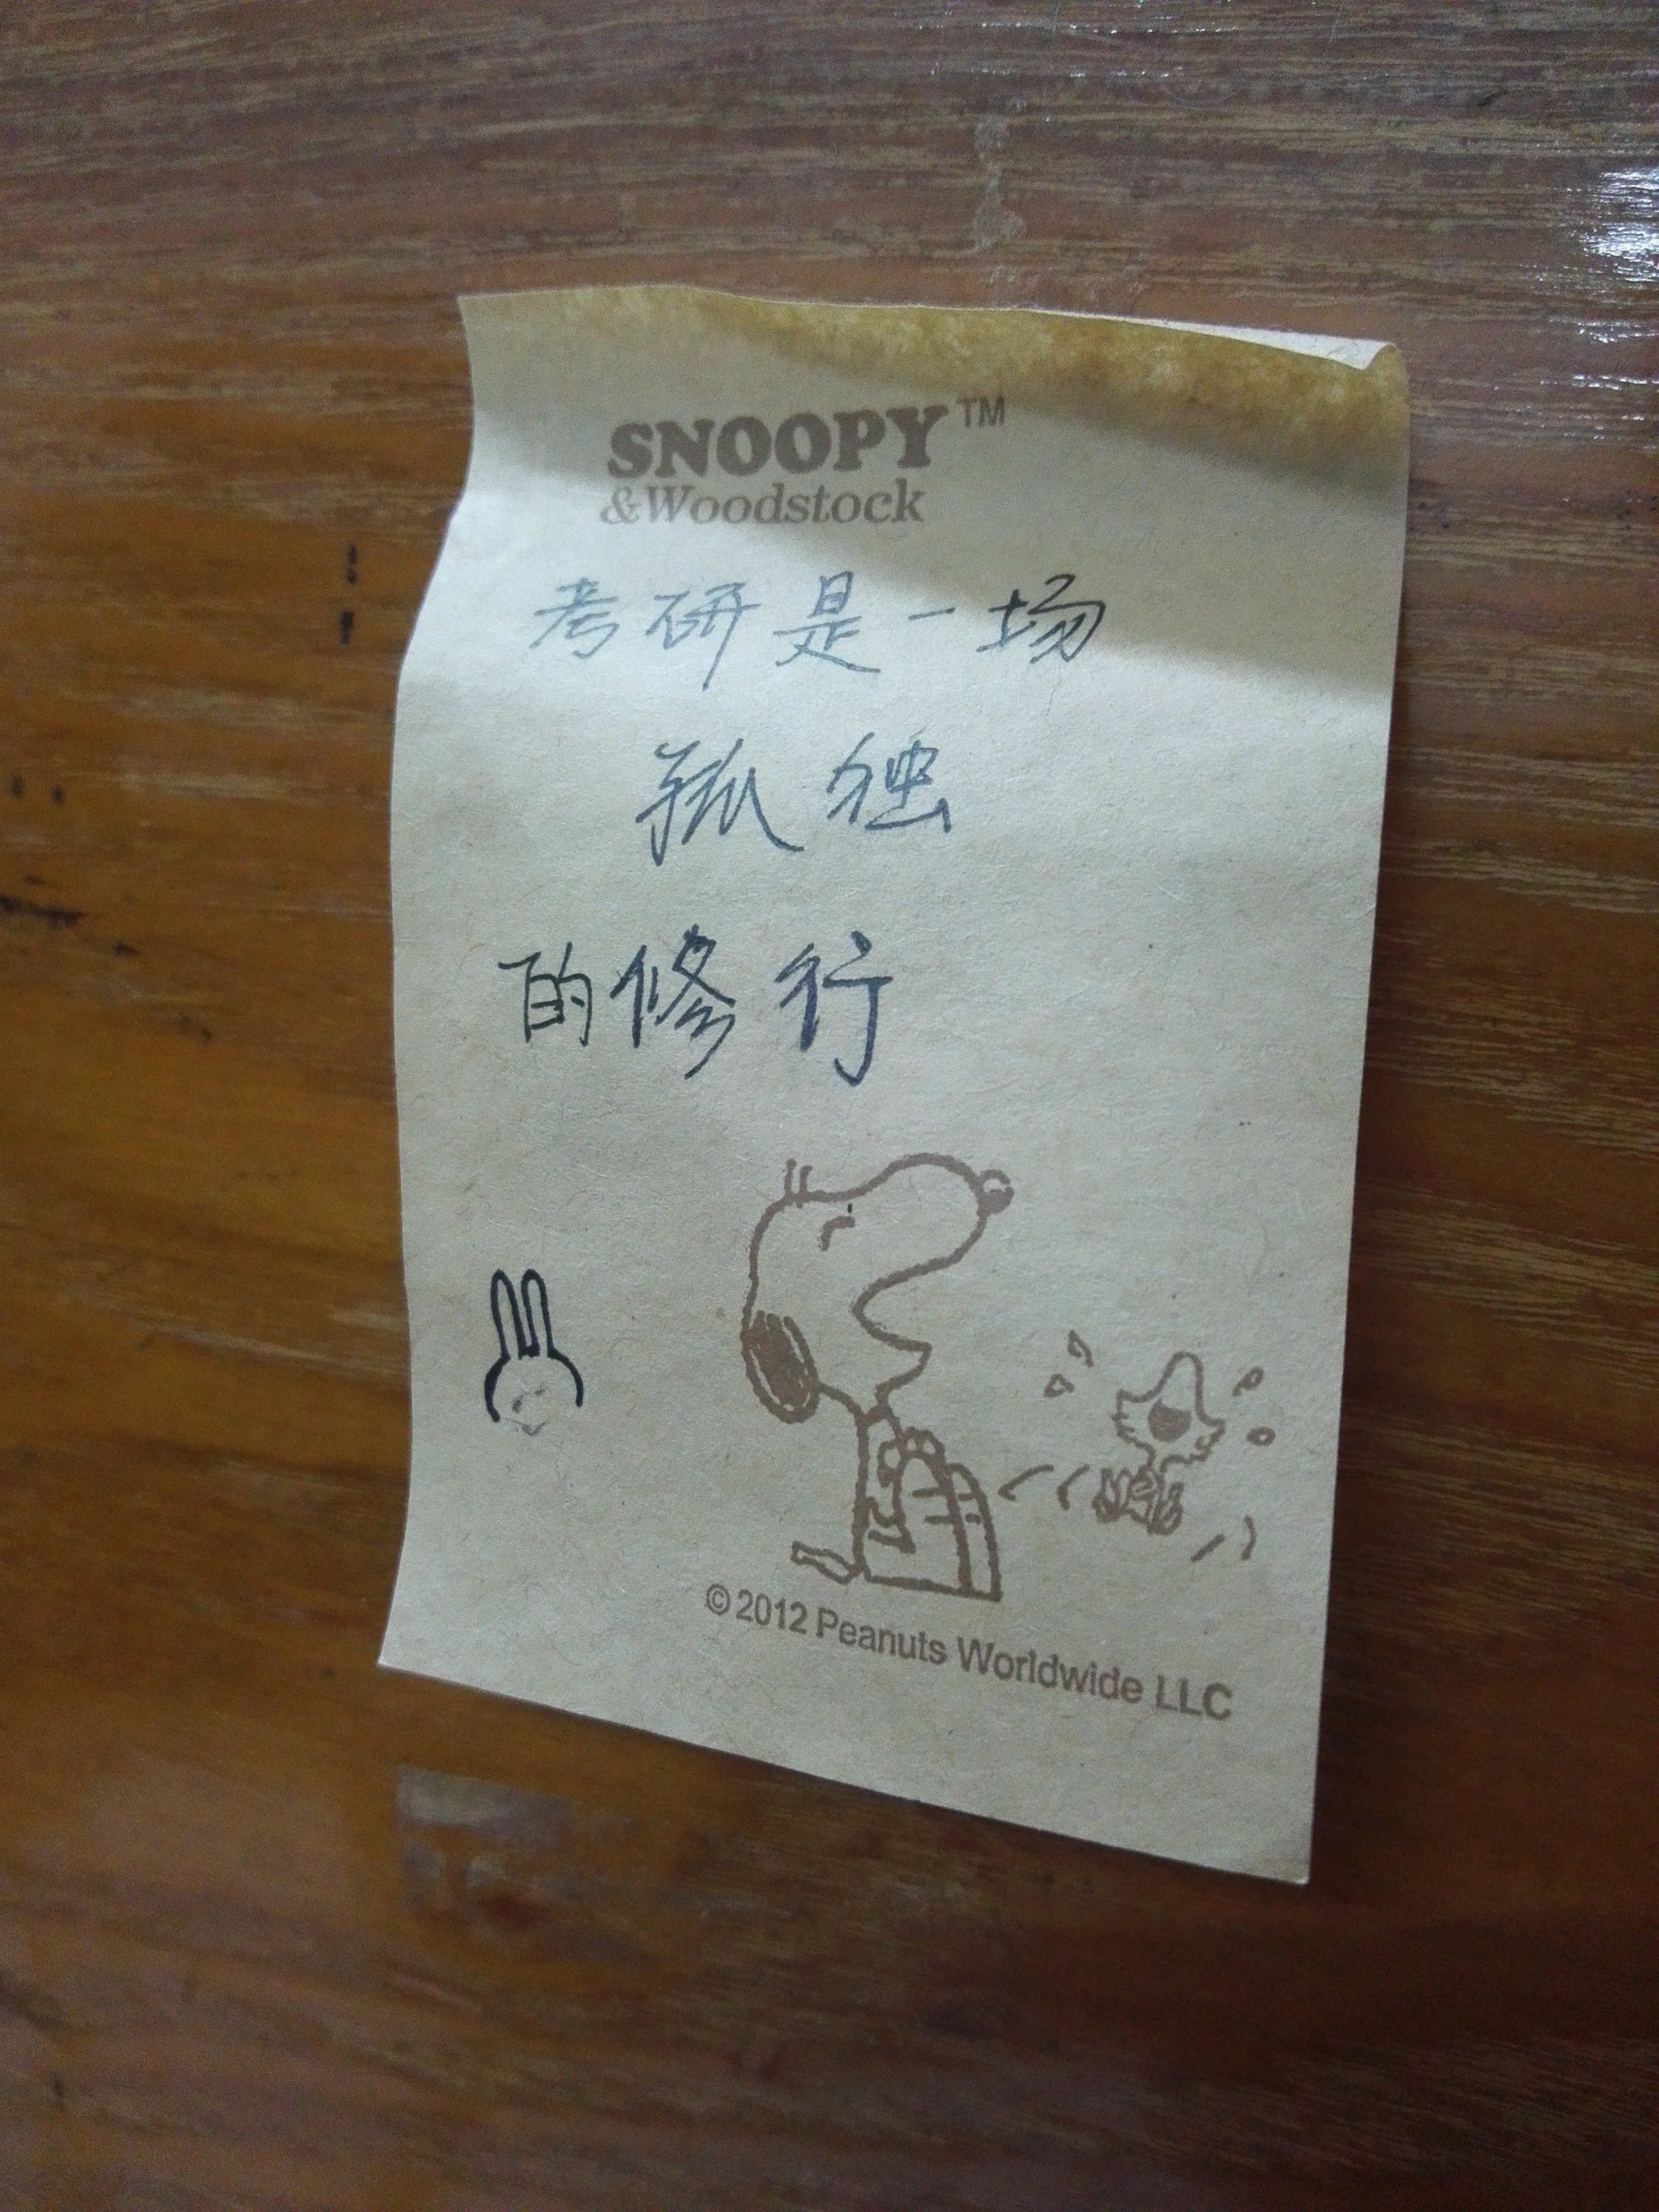 SNOOPY™
&Woodstock
考研是一场
孤独
的修行
©2012 Peanuts Worldwide LLC